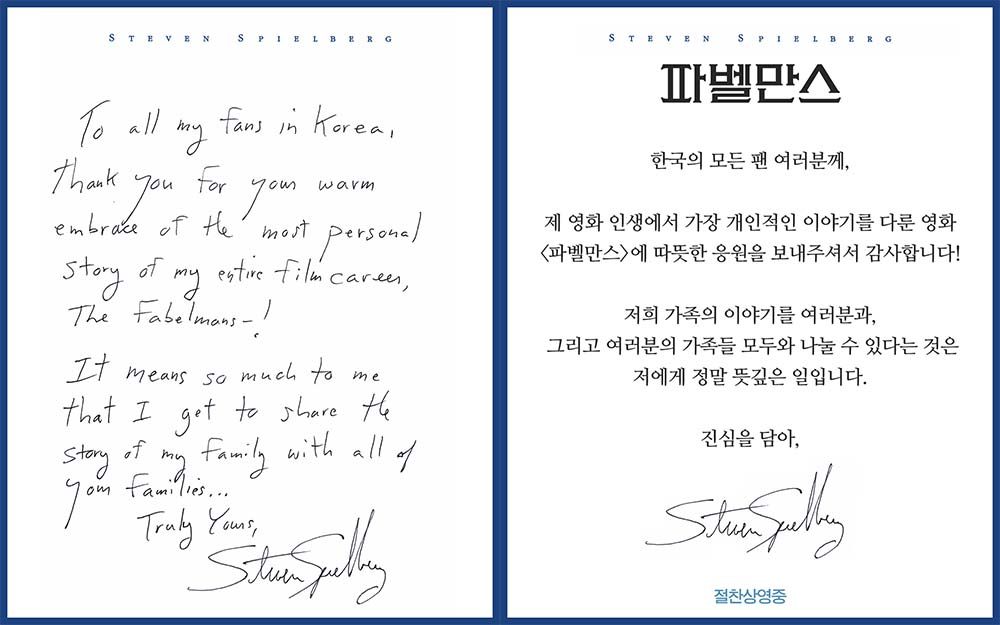 STEVEN SPIELBERG
To all my fans in Korea,
thank you for your warm
embrace of the most personal
story of my entire film career,
The Fabelmans-!
It means so much to me
that I get to share the
story of my family with all of
your families...
Truly Yours,
Steven Spielberg
STEVEN SPIELBERG
파벨만스
한국의 모든 팬 여러분께,
제 영화 인생에서 가장 개인적인 이야기를 다룬 영화
<파벨만스>에 따뜻한 응원을 보내주셔서 감사합니다!
저희 가족의 이야기를 여러분과,
그리고 여러분의 가족들 모두와 나눌 수 있다는 것은
저에게 정말 뜻깊은 일입니다.
진심을 담아,
Steven Spielberg
절찬상영중